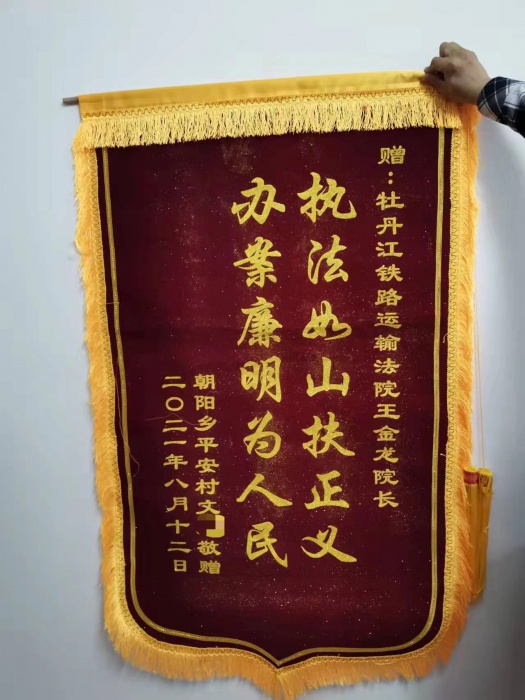 赠：牡丹江铁路运输法院王金龙院长
执法如山扶正义
办案廉明为人民
朝阳乡平安村文 敬赠
二〇二一年八月十二日